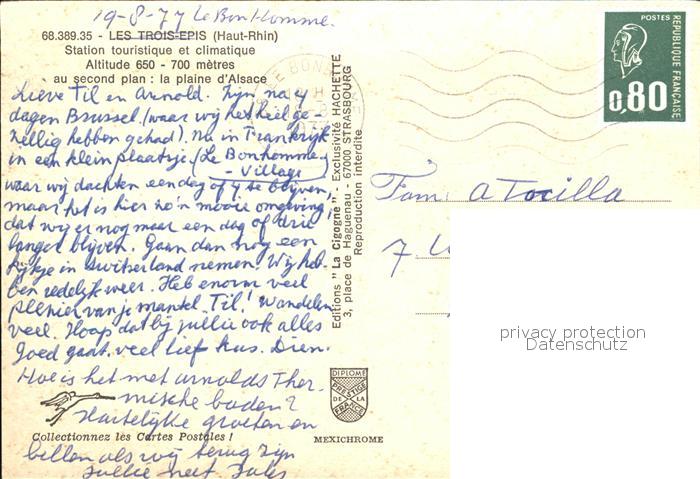 19-8-77 Le Bon Homme.
68.389.35 - LES TROIS-EPIS (Haut-Rhin)
Station touristique et climatique
Altitude 650 - 700 mètres
au second plan : la plaine d'Alsace
Lieve Til en Arnold. Zijn na 4
dagen Brussel (waar wij het heel ge-
zellig hebben gehad). Nu in Frankrijk
in een klein plaatsje (Le Bonhomme
- Village)
waar wij dachten eendag of 4 te blijven,
maar het is hier zo'n mooie omgeving,
dat wij er nog maar een dag of drie
langer blijven. Gaan dan nog een
kijkje in Switserland nemen. Wij heb-
ben redelijk weer. Heb enorm veel
plezier van je mantel, Til! Wandelen
veel. Hoop dat bij jullie ook alles
goed gaat. veel lief kus. Dien.
Hoe is het met Arnolds Ther-
mische baden?
Hartelijke groeten en
bellen als wij terug zijn
Jullie neef Jules
Collectionnez les Cartes Postales !
Editions "La Cigogne" - Exclusivité HACHETTE
3, place de Haguenau - 67000 STRASBOURG
Reproduction interdite
DIPLOME
PRESTIGE
DE LA
FRANCE
MEXICHROME
POSTES
REPUBLIQUE FRANÇAISE
0,80
Fam. A Tocilla
7
privacy protection
Datenschutz